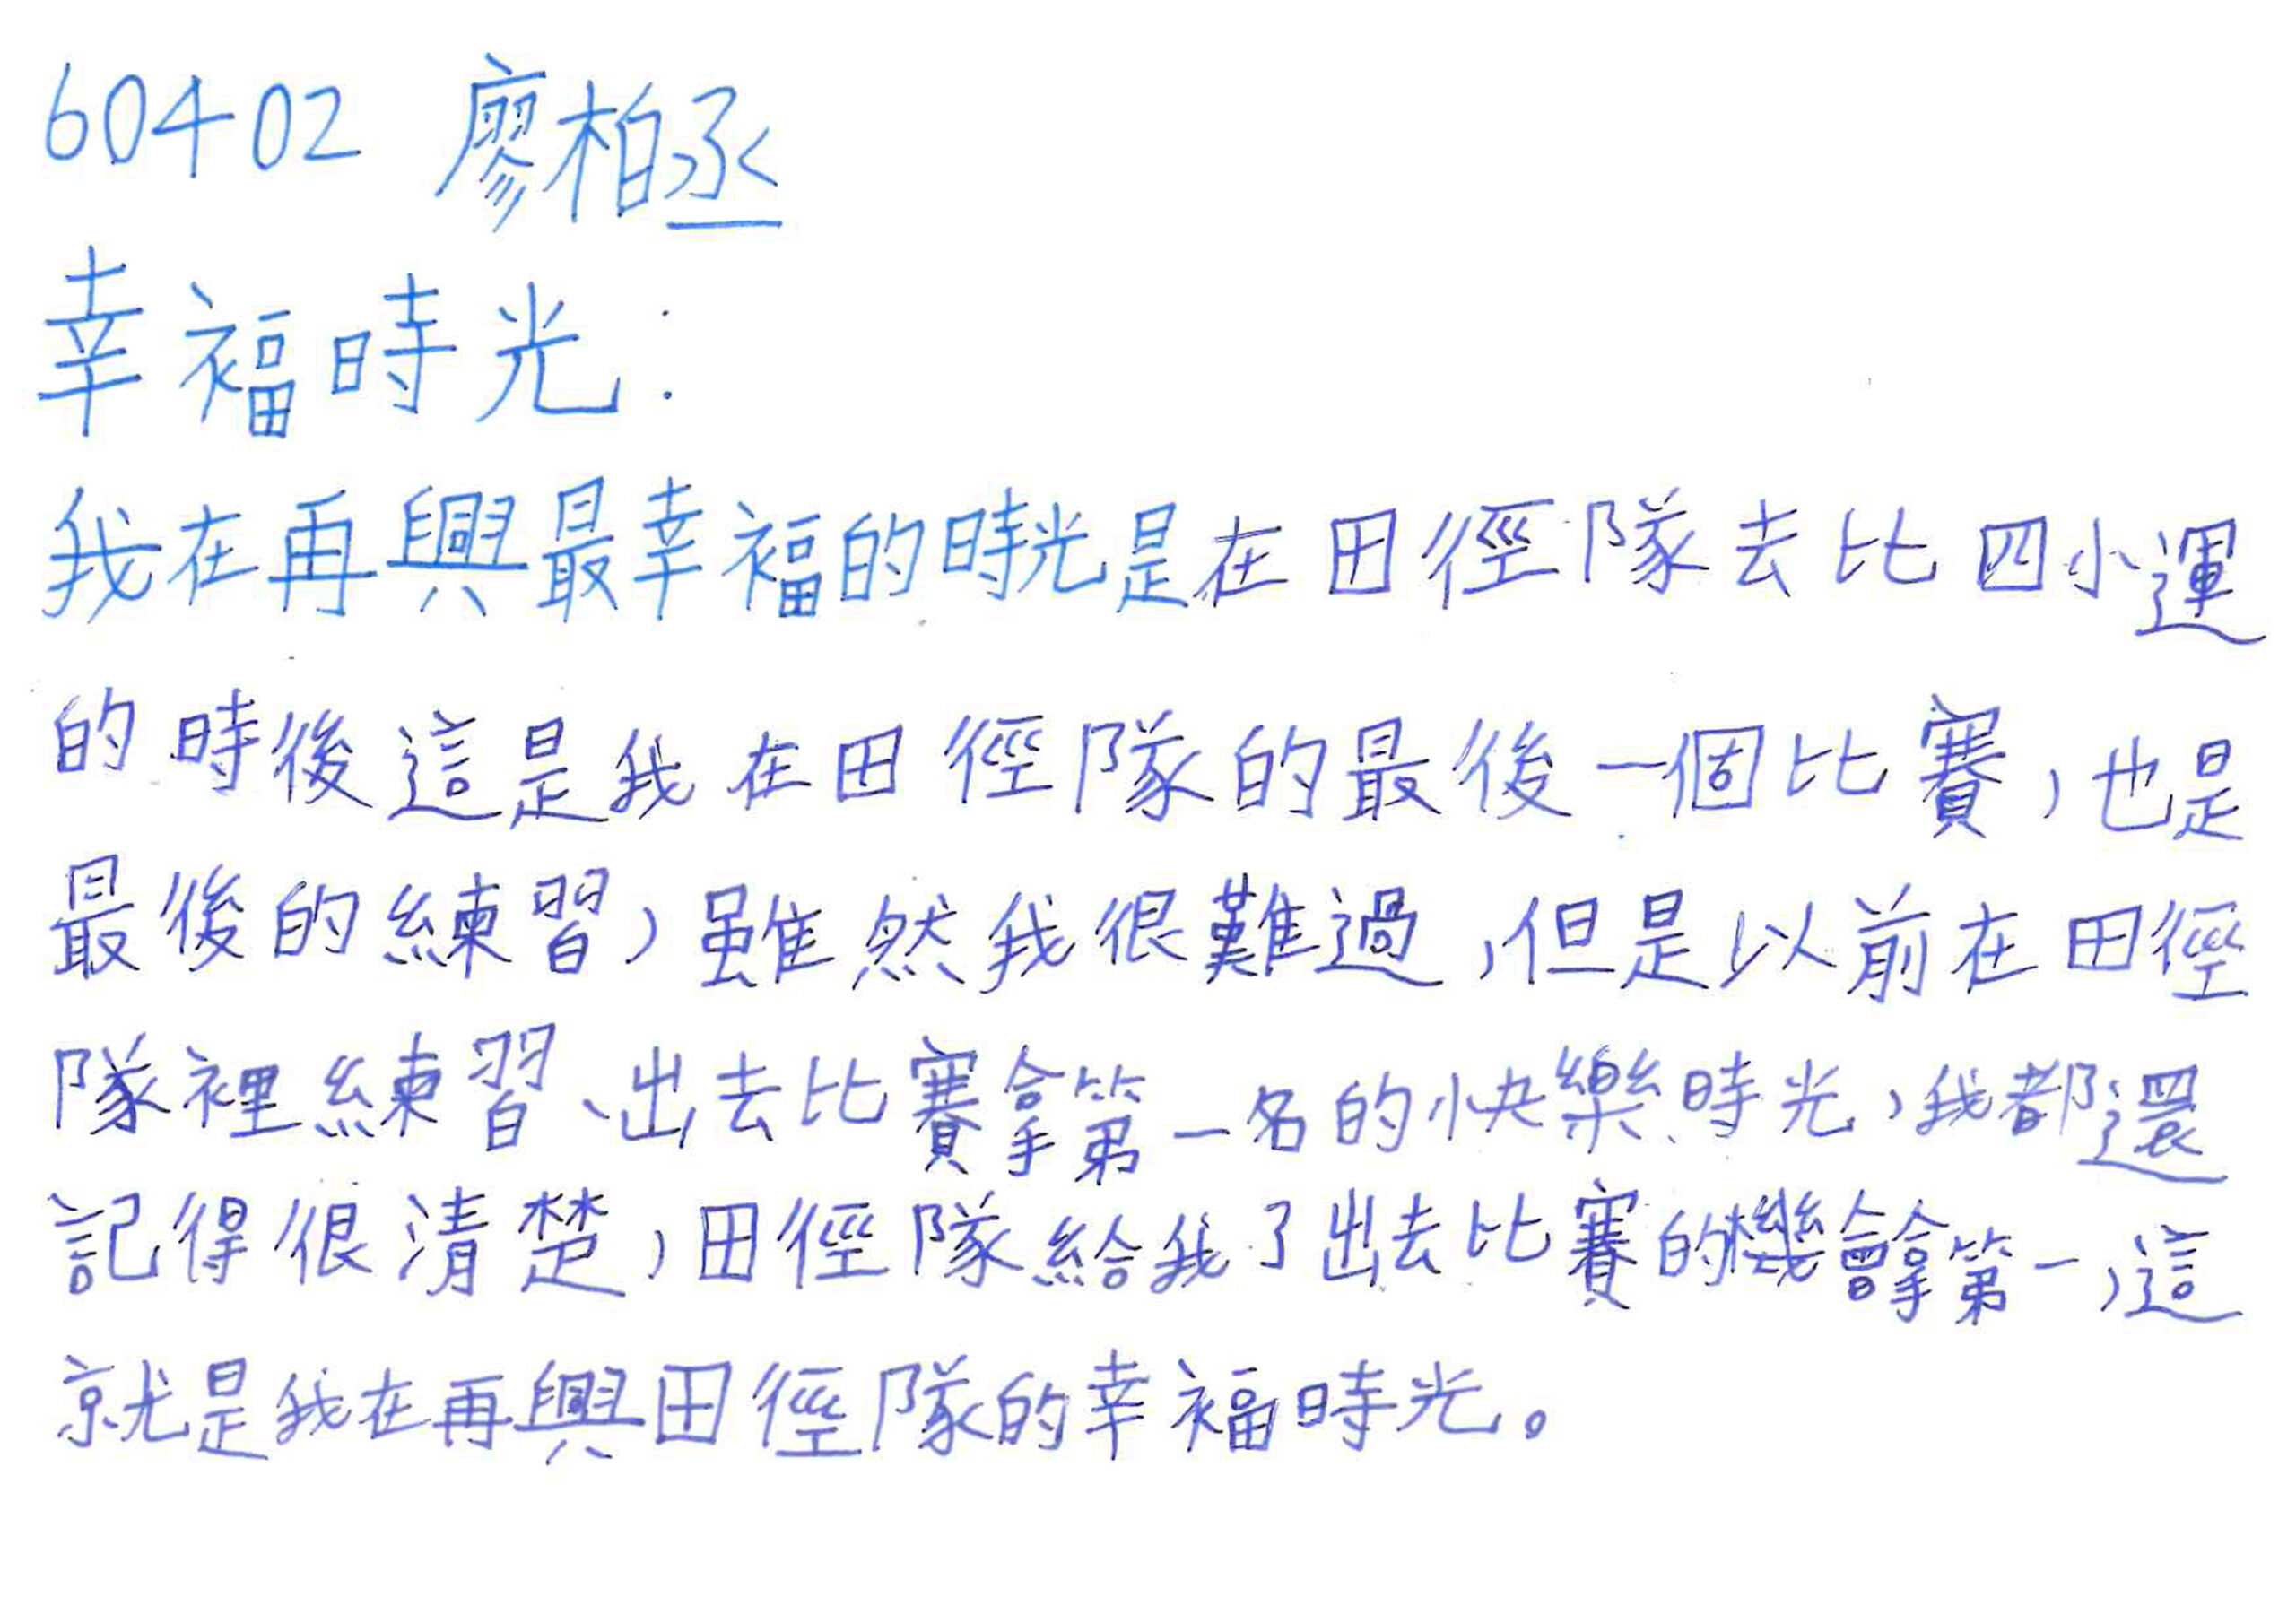 60402 廖柏丞
幸福時光:
我在再興最幸福的時光是在田徑隊去比四小運
的時後這是我在田徑隊的最後一個比賽,也是
最後的練習,雖然我很難過,但是以前在田徑
隊裡練習、出去比賽拿第一名的快樂時光,我都還
記得很清楚,田徑隊給我了出去比賽的機會拿第一,這
就是我在再興田徑隊的幸福時光。